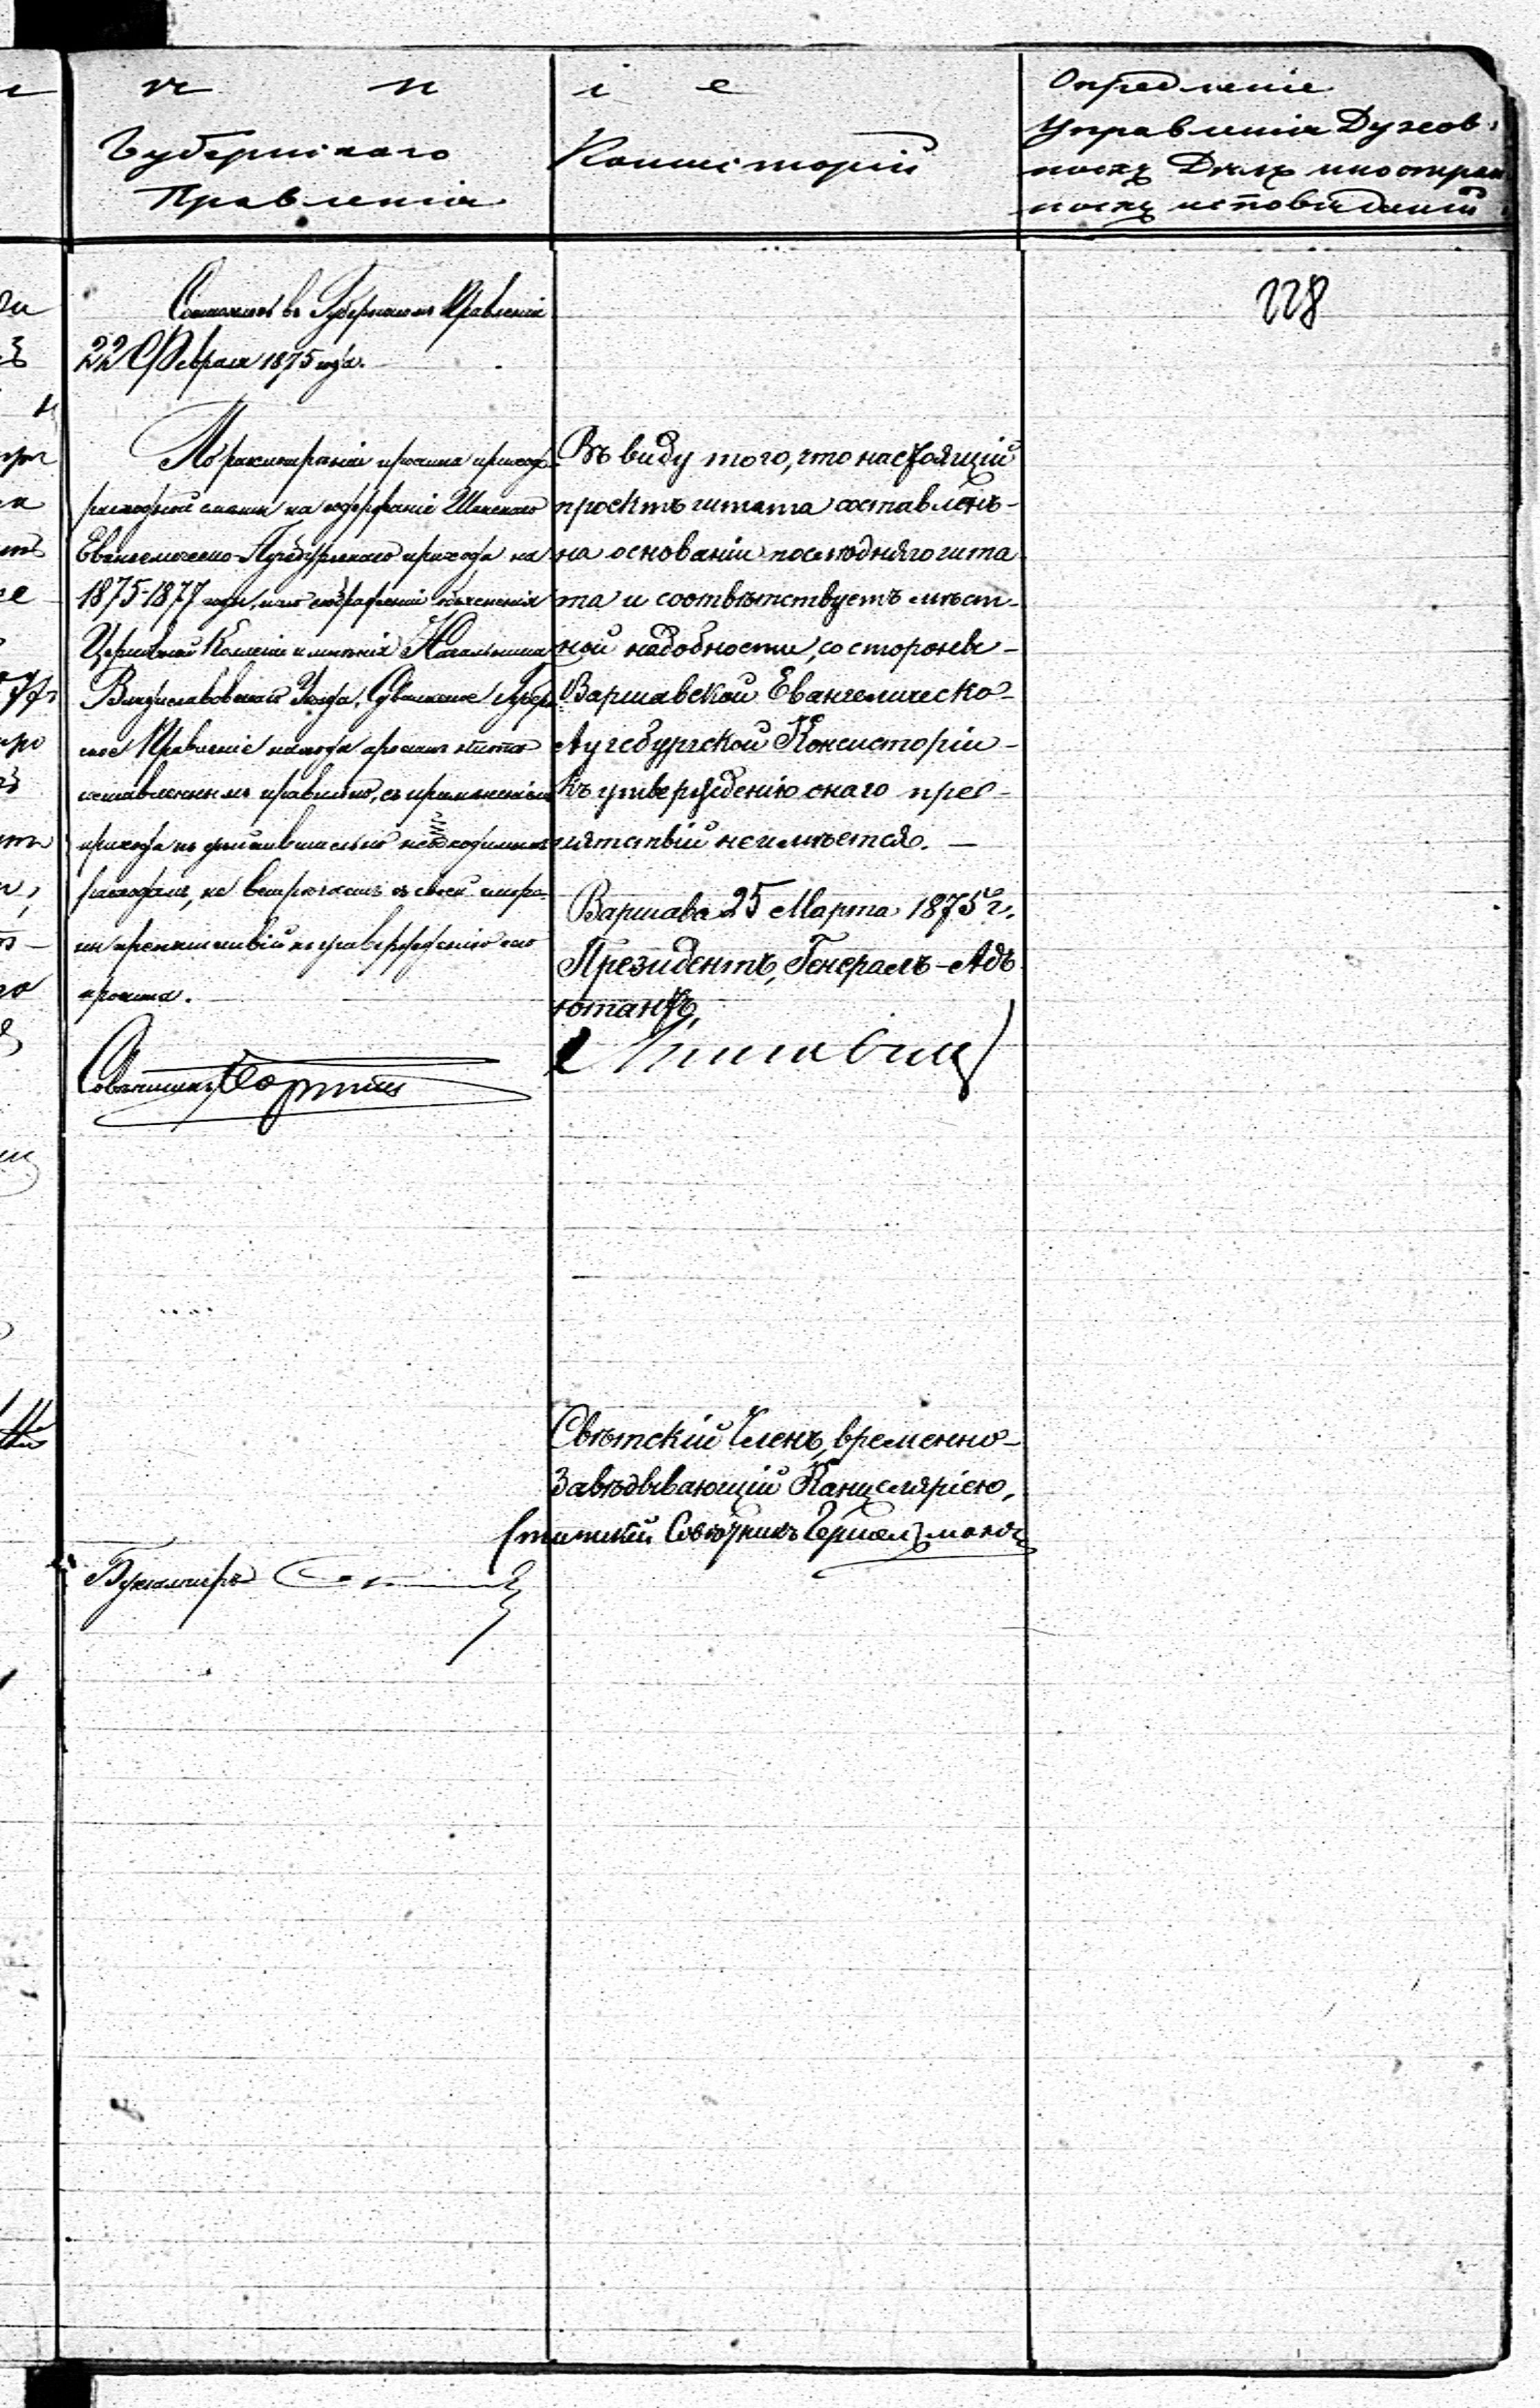 н н і е
Губернскаго
Правленія
Консисторіи
Опредѣленіе
Управленія Духов-
ныхъ Дѣлъ иностран
ныхъ исповѣданій
228
въ Губернскомъ Правленіи
22 Февраля 1875 года.
По разсмотрѣніи проэкта приходо-
расходной смѣты на содержаніе
Евангелическо-Аугсбургскаго прихода на
1875-1877 годы, соображеніи объясненія
Церковной Коллегіи и мнѣнія Начальника
Владиславовскаго Уѣзда, Сувалкское Губерн
ское Правленіе находя проэктъ штата
составленнымъ правильно, съ примѣненіемъ
прихода къ дѣйствительно необходимымъ
расходамъ, не встрѣчаетъ съ своей сторо-
ны препятствій къ утвержденію его
проэкта.
Совѣтникъ
Бухгалтеръ
Въ виду того, что настоящій
проектъ штата составленъ-
на основаніи послѣдняго шта
та и соотвѣтствуетъ мѣст-
ной надобности, со стороны-
Варшавской Евангелическо-
Аугсбургской Консисторіи-
къ утвержденію онаго преп-
ятствій не имѣется. —
Варшава 25 Марта 1875 г.
Президентъ, Генералъ-Адъ
ютантъ,
Свѣтскій Членъ, временно-
Завѣдывающій Канцеляріею,
Статскій Совѣтникъ